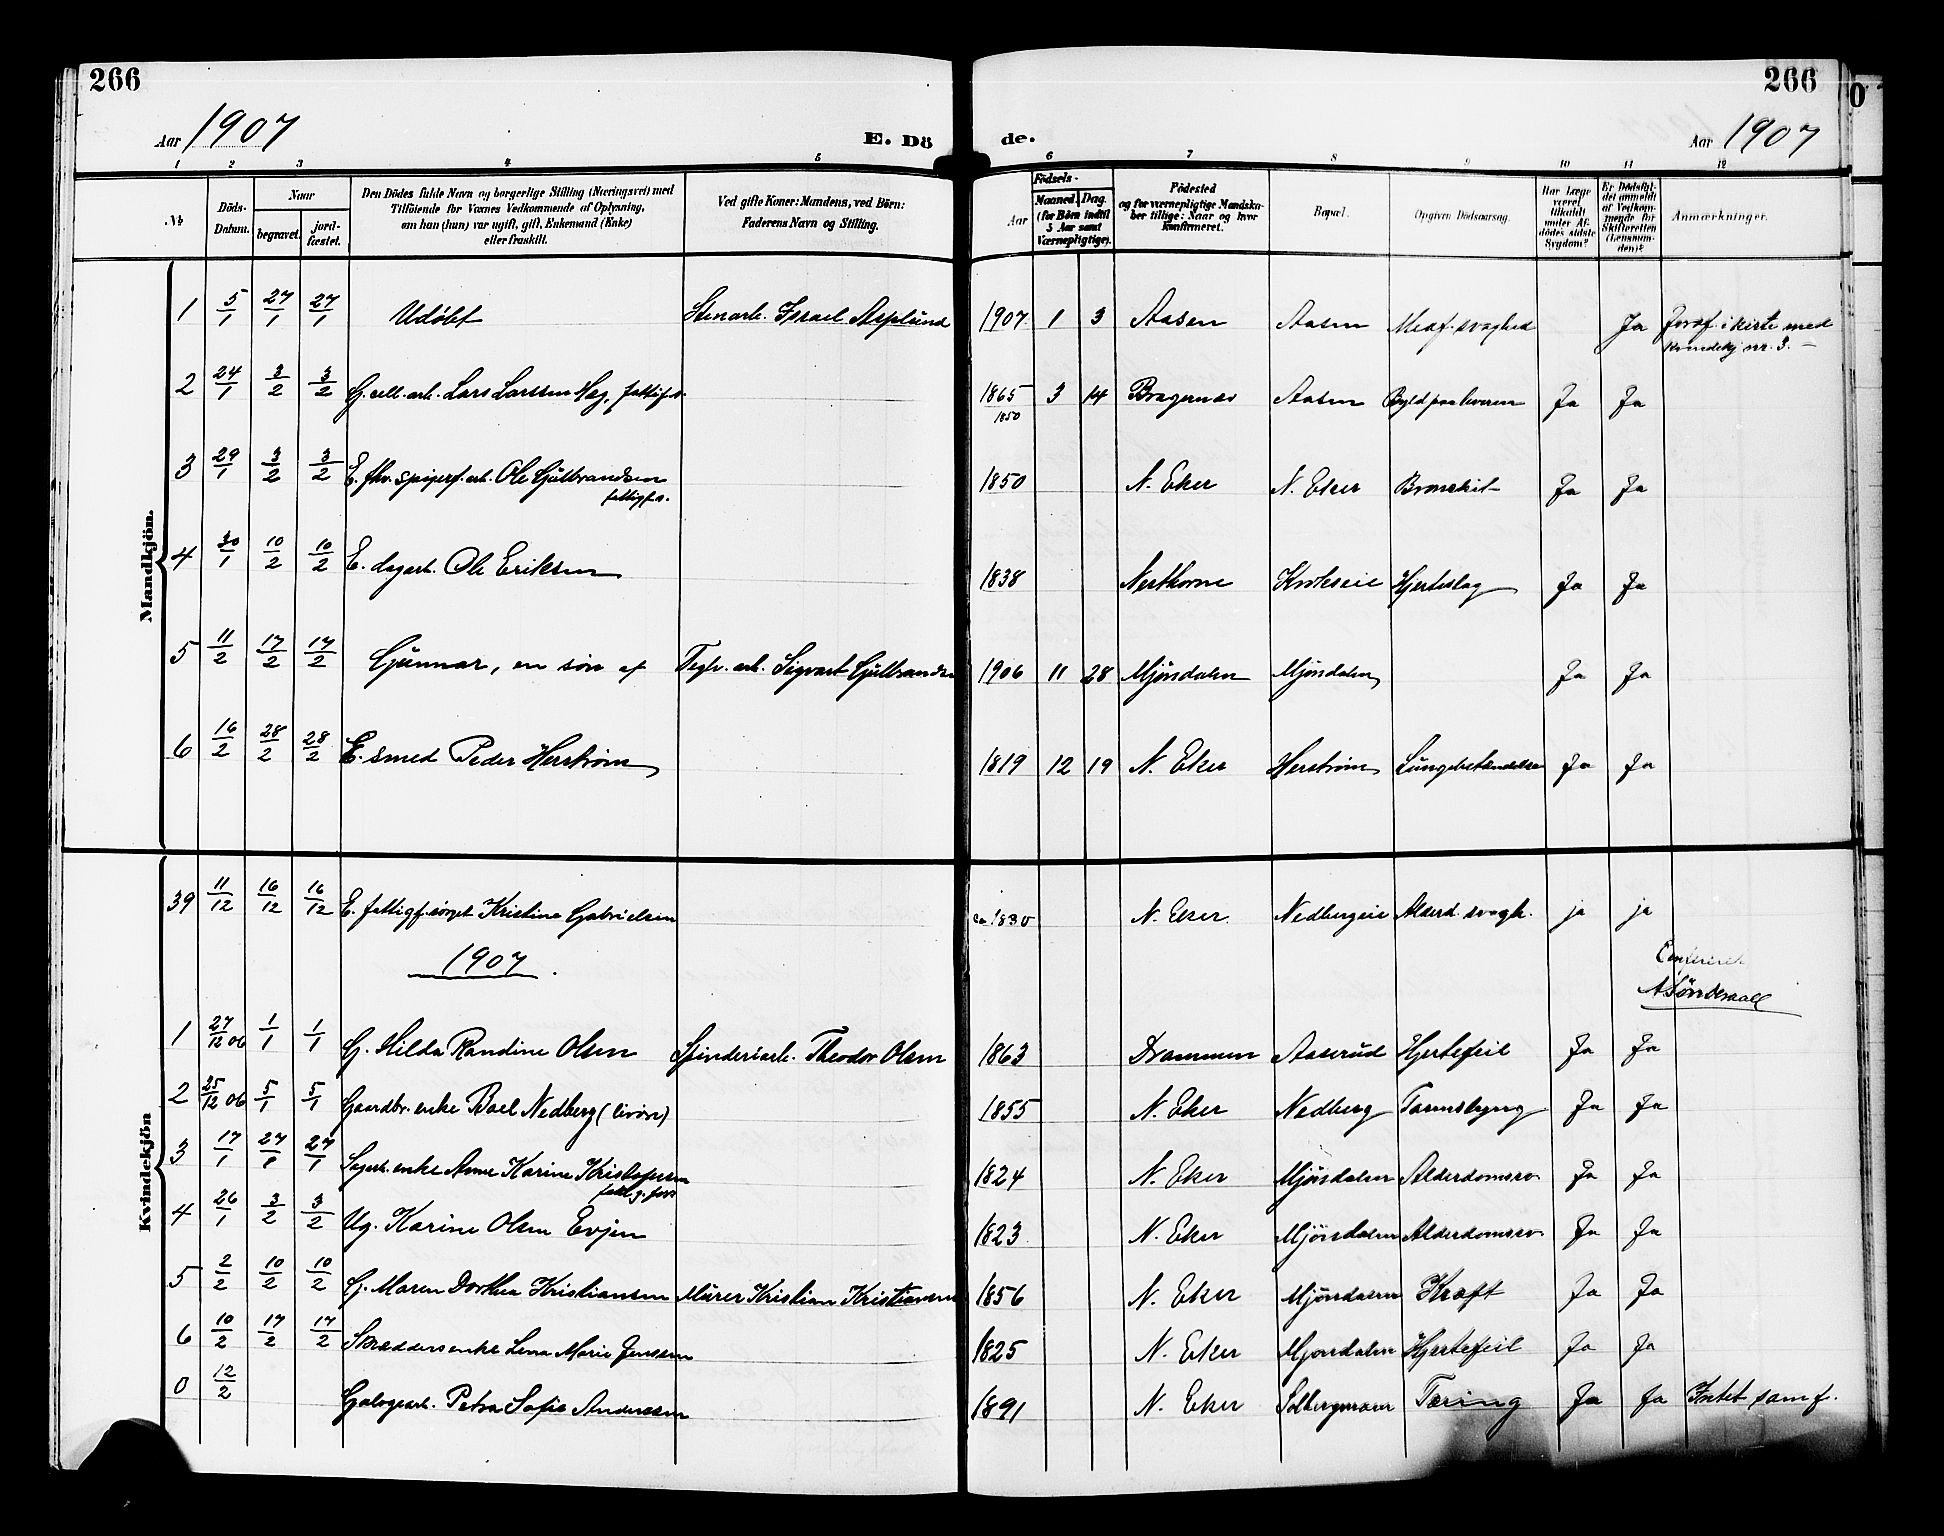 266
266
Aar 1907
E. Dö
de.
Aar 1907
1 2 3 4 5 6 7 8 9 10 11 12
№
Döds-
Datum.
Naar
begravet.
jord-
fæstet.
Den Dödes fulde Navn og borgerlige Stilling (Næringsvei) med
Tilföiende for Voxnes Vedkommende af Oplysning,
om han (hun) var ugift, gift, Enkemand (Enke)
eller fraskilt.
Ved gifte Koner: Mandens, ved Börn:
Faderens Navn og Stilling.
Födsels-
Aar
Maaned. Dag.
(for Börn indtil
5 Aar samt
Værnepligtige).
Födested
og for værnepligtige Mandska-
ber tillige: Naar og hvor
konfirmeret.
Bopæl.
Opgiven Dödsaarsag.
Har Læge
været
tilkaldt
under Af-
dödes sidste
Sygdom?
Er Dödsfal-
det anmeldt
af Vedkom-
mende for
Skifteretten
(Lensman-
den)?
Anmærkninger.
Mandkjön.
1 5/1 27/1 27/1 Udøbt Stenarb. Israel Asplund 1907 1 3 Aasen Aasen Medf. svaghed Ja Jordf. i kiste med
Kvindekj nr. 3.
2 24/1 3/2 3/2 G. cell. arb. Lars Larssen Hag, fattigfs. 1865 3 14 Bragernæs Aasen Byld paa leveren Ja Ja
1850
3 29/1 3/2 3/2 E. fhv. spigerf. arb. Ole Gulbrandsen 1850 N. Eker N. Eker Bronchit Ja Ja
fattigfs.
4 30/1 10/2 10/2 E. dagarb. Ole Eriksen 1838 Hjerteslag Ja Ja
5 11/2 17/2 17/2 Gunnar, en søn af Teglv. arb. Sigvart Gulbrandsen 1906 11 28 Mjøndalen Mjøndalen Ja Ja
6 16/2 28/2 28/2 E. smed Peder Herstrøm 1819 12 19 N. Eker Herstrøm Lungebetændelse Ja Ja
Kvindekjön
39 11/12 16/12 16/12 E. fattigf.sørget Kristine Gabrielsen ca 1830 N. Eker. Nedbergeie Alderd. svagh. ja ja
1907
1 27/12 06 1/1 1/1 G. Hilda Randine Olsen Spinderiarb. Theodor Olsen 1863 Drammen Aaserud Hjertefeil Ja Ja
2 25/12 06 5/1 5/1 Gaardbr. enke Boel Nedberg (livøre) 1855 N. Eker Nedberg Tarmslyng Ja Ja
3 17/1 27/1 27/1 Sagarb. enke Anne Karine Kristofersen 1824 N. Eker Mjøndalen Alderdomssv Ja Ja
fattigfors
4 26/1 3/2 3/2 Ug. Karine Olsen Evjen 1823 N. Eker Mjøndalen Alderdomssv Ja Ja
5 2/2 10/2 10/2 G. Maren Dorthea Kristiansen Murer Kristian Kristiansen 1856 N. Eker Mjøndalen Kræft Ja Ja
6 10/2 17/2 17/2 Skræddersenke Lena Marie Jenssen 1825 N. Eker Mjøndalen Hjertefeil Ja Ja
0 12/2 Petra Sofie Anderssen 1891 N. Eker Tæring Ja Ja Intet samf.